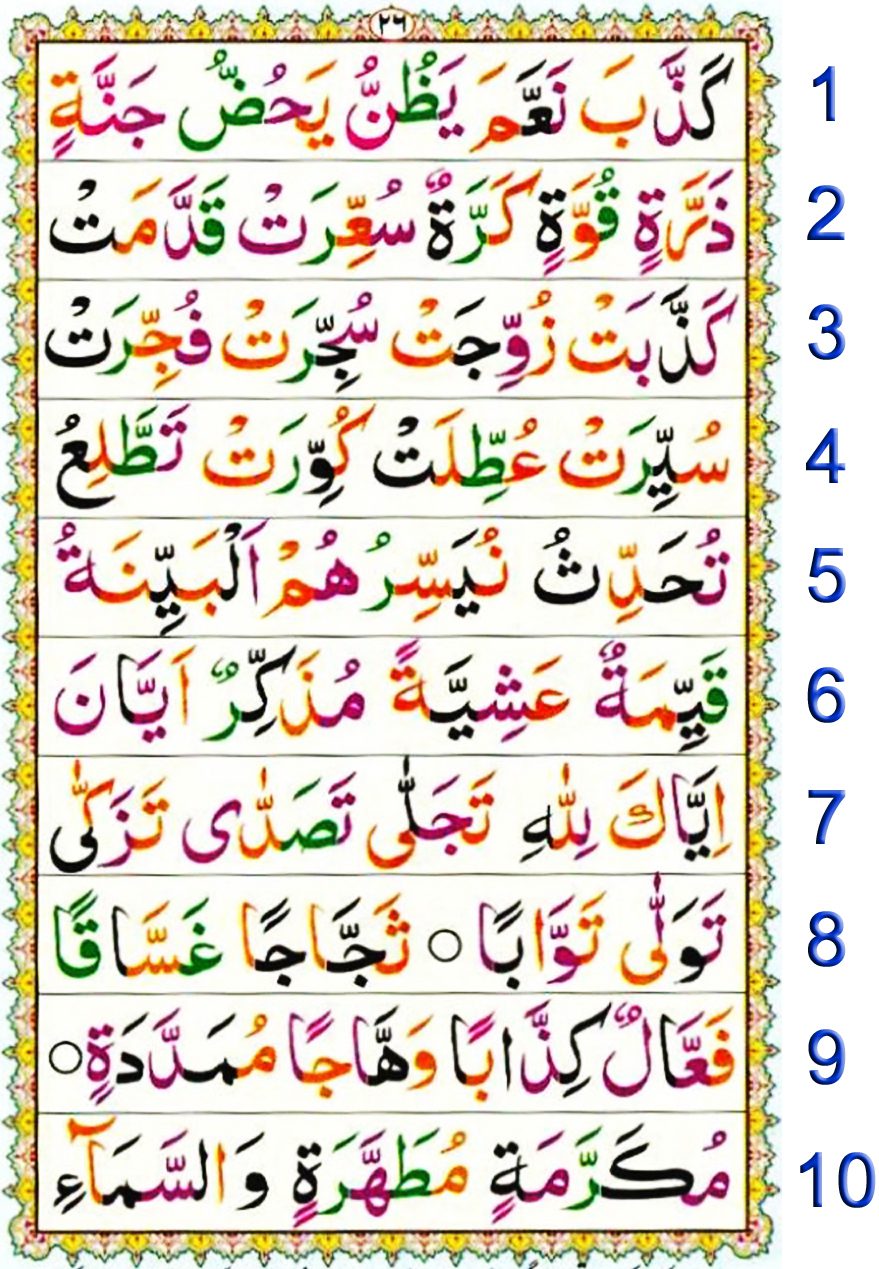 ٢٦
كَذَّبَ نَعَّمَ يَظُنُّ يَحُضُّ جَنَّةٍ 1
ذَرَّةٍ قُوَّةٍ كَرَّةٌ سُعِّرَتْ قَدَّمَتْ 2
كَذَّبَتْ زُوِّجَتْ سُجِّرَتْ فُجِّرَتْ 3
سُيِّرَتْ عُطِّلَتْ كُوِّرَتْ تَطَّلِعُ 4
تُحَدِّثُ نُيَسِّرُهُمْ اَلْبَيِّنَةُ 5
قَيِّمَةٌ عَشِيَّةً مُذَكِّرٌ اَيَّانَ 6
اِيَّاكَ لِلّٰهِ تَجَلّٰى تَصَدّٰى تَزَكّٰى 7
تَوَلّٰى تَوَّابًا ○ ثَجَّاجًا غَسَّاقًا 8
فَعَّالٌ كِذَّابًا وَهَّاجًا مُمَدَّدَةٍ ○ 9
مُكَرَّمَةٍ مُطَهَّرَةٍ وَالسَّمَآءِ 10